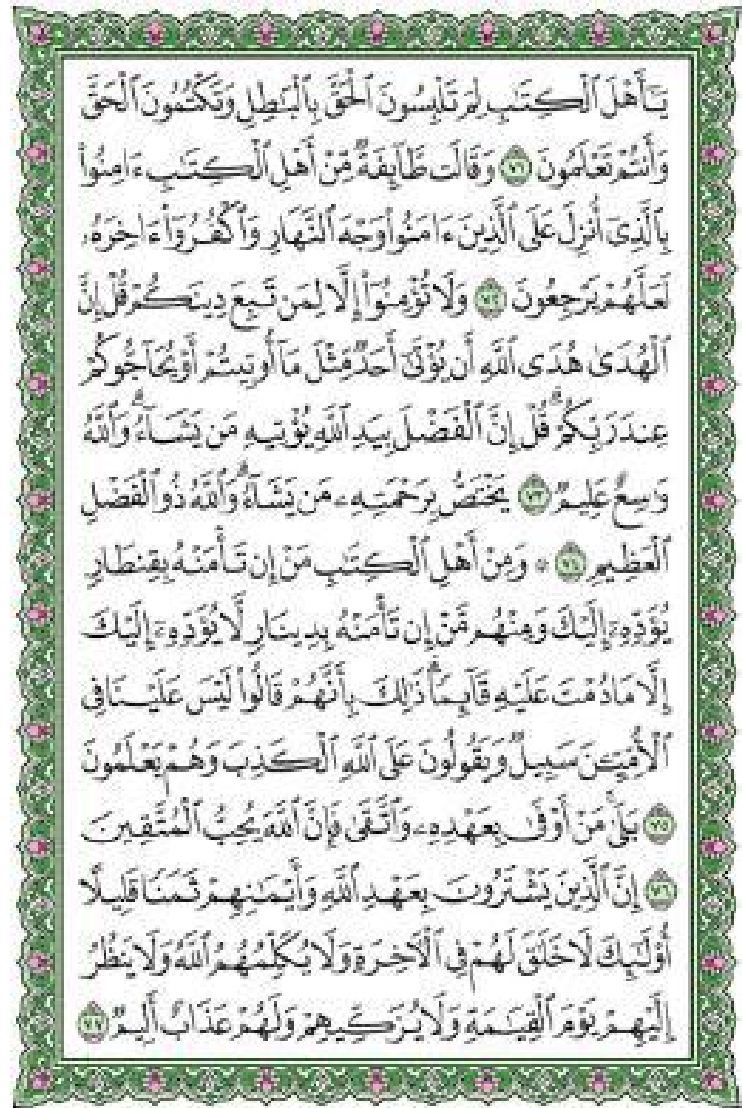 يَـٰٓأَهْلَ ٱلْكِتَـٰبِ لِمَ تَلْبِسُونَ ٱلْحَقَّ بِٱلْبَـٰطِلِ وَتَكْتُمُونَ ٱلْحَقَّ
وَأَنتُمْ تَعْلَمُونَ ٧١ وَقَالَت طَّآئِفَةٌ مِّنْ أَهْلِ ٱلْكِتَـٰبِ ءَامِنُوا۟
بِٱلَّذِىٓ أُنزِلَ عَلَى ٱلَّذِينَ ءَامَنُوا۟ وَجْهَ ٱلنَّهَارِ وَٱكْفُرُوٓا۟ ءَاخِرَهُۥ
لَعَلَّهُمْ يَرْجِعُونَ ٧٢ وَلَا تُؤْمِنُوٓا۟ إِلَّا لِمَن تَبِعَ دِينَكُمْ قُلْ إِنَّ
ٱلْهُدَىٰ هُدَى ٱللَّهِ أَن يُؤْتَىٰٓ أَحَدٌ مِّثْلَ مَآ أُوتِيتُمْ أَوْ يُحَآجُّوكُمْ
عِندَ رَبِّكُمْ ۗ قُلْ إِنَّ ٱلْفَضْلَ بِيَدِ ٱللَّهِ يُؤْتِيهِ مَن يَشَآءُ ۗ وَٱللَّهُ
وَٰسِعٌ عَلِيمٌ ٧٣ يَخْتَصُّ بِرَحْمَتِهِۦ مَن يَشَآءُ ۗ وَٱللَّهُ ذُو ٱلْفَضْلِ
ٱلْعَظِيمِ ٧٤ ۞ وَمِنْ أَهْلِ ٱلْكِتَـٰبِ مَنْ إِن تَأْمَنْهُ بِقِنطَارٍ
يُؤَدِّهِۦٓ إِلَيْكَ وَمِنْهُم مَّنْ إِن تَأْمَنْهُ بِدِينَارٍ لَّا يُؤَدِّهِۦٓ إِلَيْكَ
إِلَّا مَا دُمْتَ عَلَيْهِ قَآئِمًا ۗ ذَٰلِكَ بِأَنَّهُمْ قَالُوا۟ لَيْسَ عَلَيْنَا فِى
ٱلْأُمِّيِّـۧنَ سَبِيلٌ وَيَقُولُونَ عَلَى ٱللَّهِ ٱلْكَذِبَ وَهُمْ يَعْلَمُونَ
٧٥ بَلَىٰ مَنْ أَوْفَىٰ بِعَهْدِهِۦ وَٱتَّقَىٰ فَإِنَّ ٱللَّهَ يُحِبُّ ٱلْمُتَّقِينَ
٧٦ إِنَّ ٱلَّذِينَ يَشْتَرُونَ بِعَهْدِ ٱللَّهِ وَأَيْمَـٰنِهِمْ ثَمَنًا قَلِيلًا
أُو۟لَـٰٓئِكَ لَا خَلَـٰقَ لَهُمْ فِى ٱلْـَٔاخِرَةِ وَلَا يُكَلِّمُهُمُ ٱللَّهُ وَلَا يَنظُرُ
إِلَيْهِمْ يَوْمَ ٱلْقِيَـٰمَةِ وَلَا يُزَكِّيهِمْ وَلَهُمْ عَذَابٌ أَلِيمٌ ٧٧